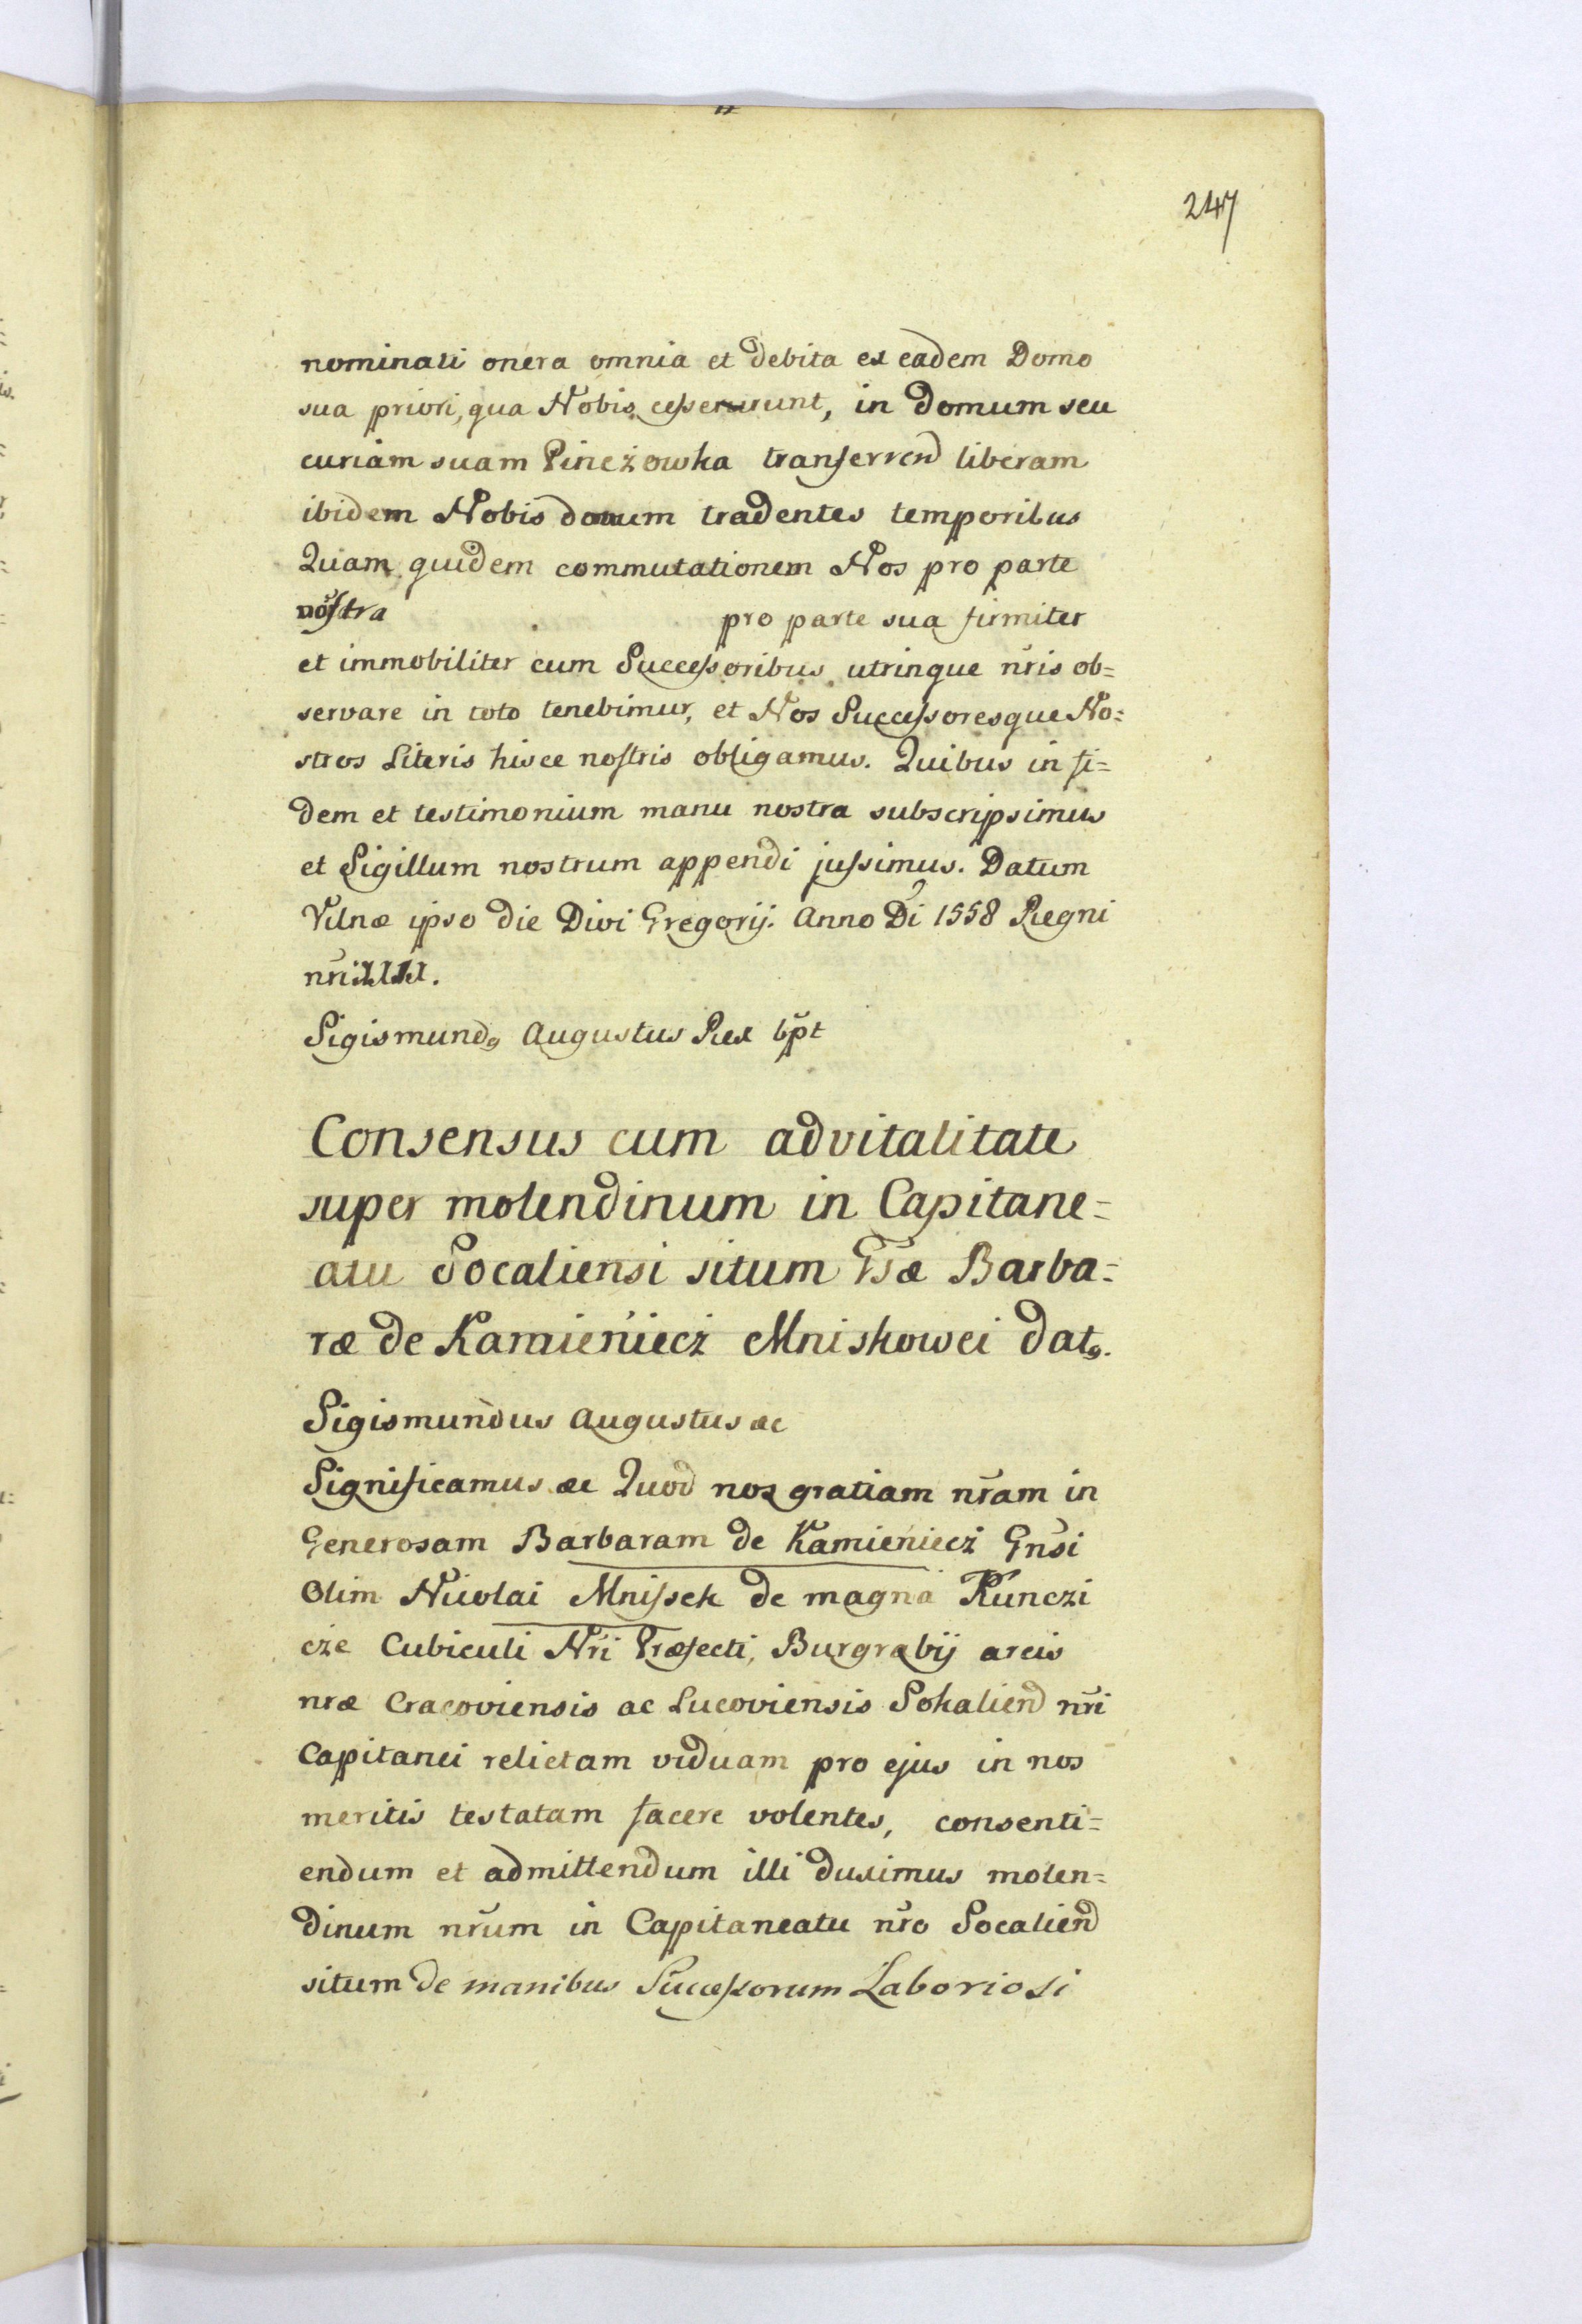 247
nominati onera omnia et debita ex eadem Domo
sua priori, qua Nobis cesserunt, in domum seu
curiam suam Pinezowka transferrend liberam
ibidem Nobis domum tradentes temporibus
Quam quidem commutationem Nos pro parte
nostra pro parte sua firmiter
et immobiliter cum Successoribus utrinque nris ob=
servare in toto tenebimur, et Nos Successoresque No=
stros Literis hisce nostris obligamus. Quibus in fi=
dem et testimonium manu nostra subscripsimus
et Sigillum nostrum appendi jussimus. Datum
Vilnæ ipso die Divi Gregorij. Anno Di 1558 Regni
nri
Sigismund9 Augustus Rex
Consensus cum advitalitate
super molendinum in Capitane=
atu Socaliensi situm Gsæ Barba=
ræ de Kamieńiecż Mniskowei dat9.
Sigismundus Augustus &c
Significamus &c Quod nos gratiam nram in
Generosam Barbaram de Kamieńiecż Gnsi
Olim Nicolai Mnissek de magna Kunczi
cże Cubiculi Nri Præfecti, Burgrabij arcis
nræ Cracoviensis ac Lucoviensis Sokaliend nri
Capitanei relictam viduam pro ejus in nos
meritis testatam facere volentes, consenti=
endum et admittendum illi duximus molen=
dinum nrum in Capitaneatu nro Socaliend
situm de manibus Successorum Laboriosi